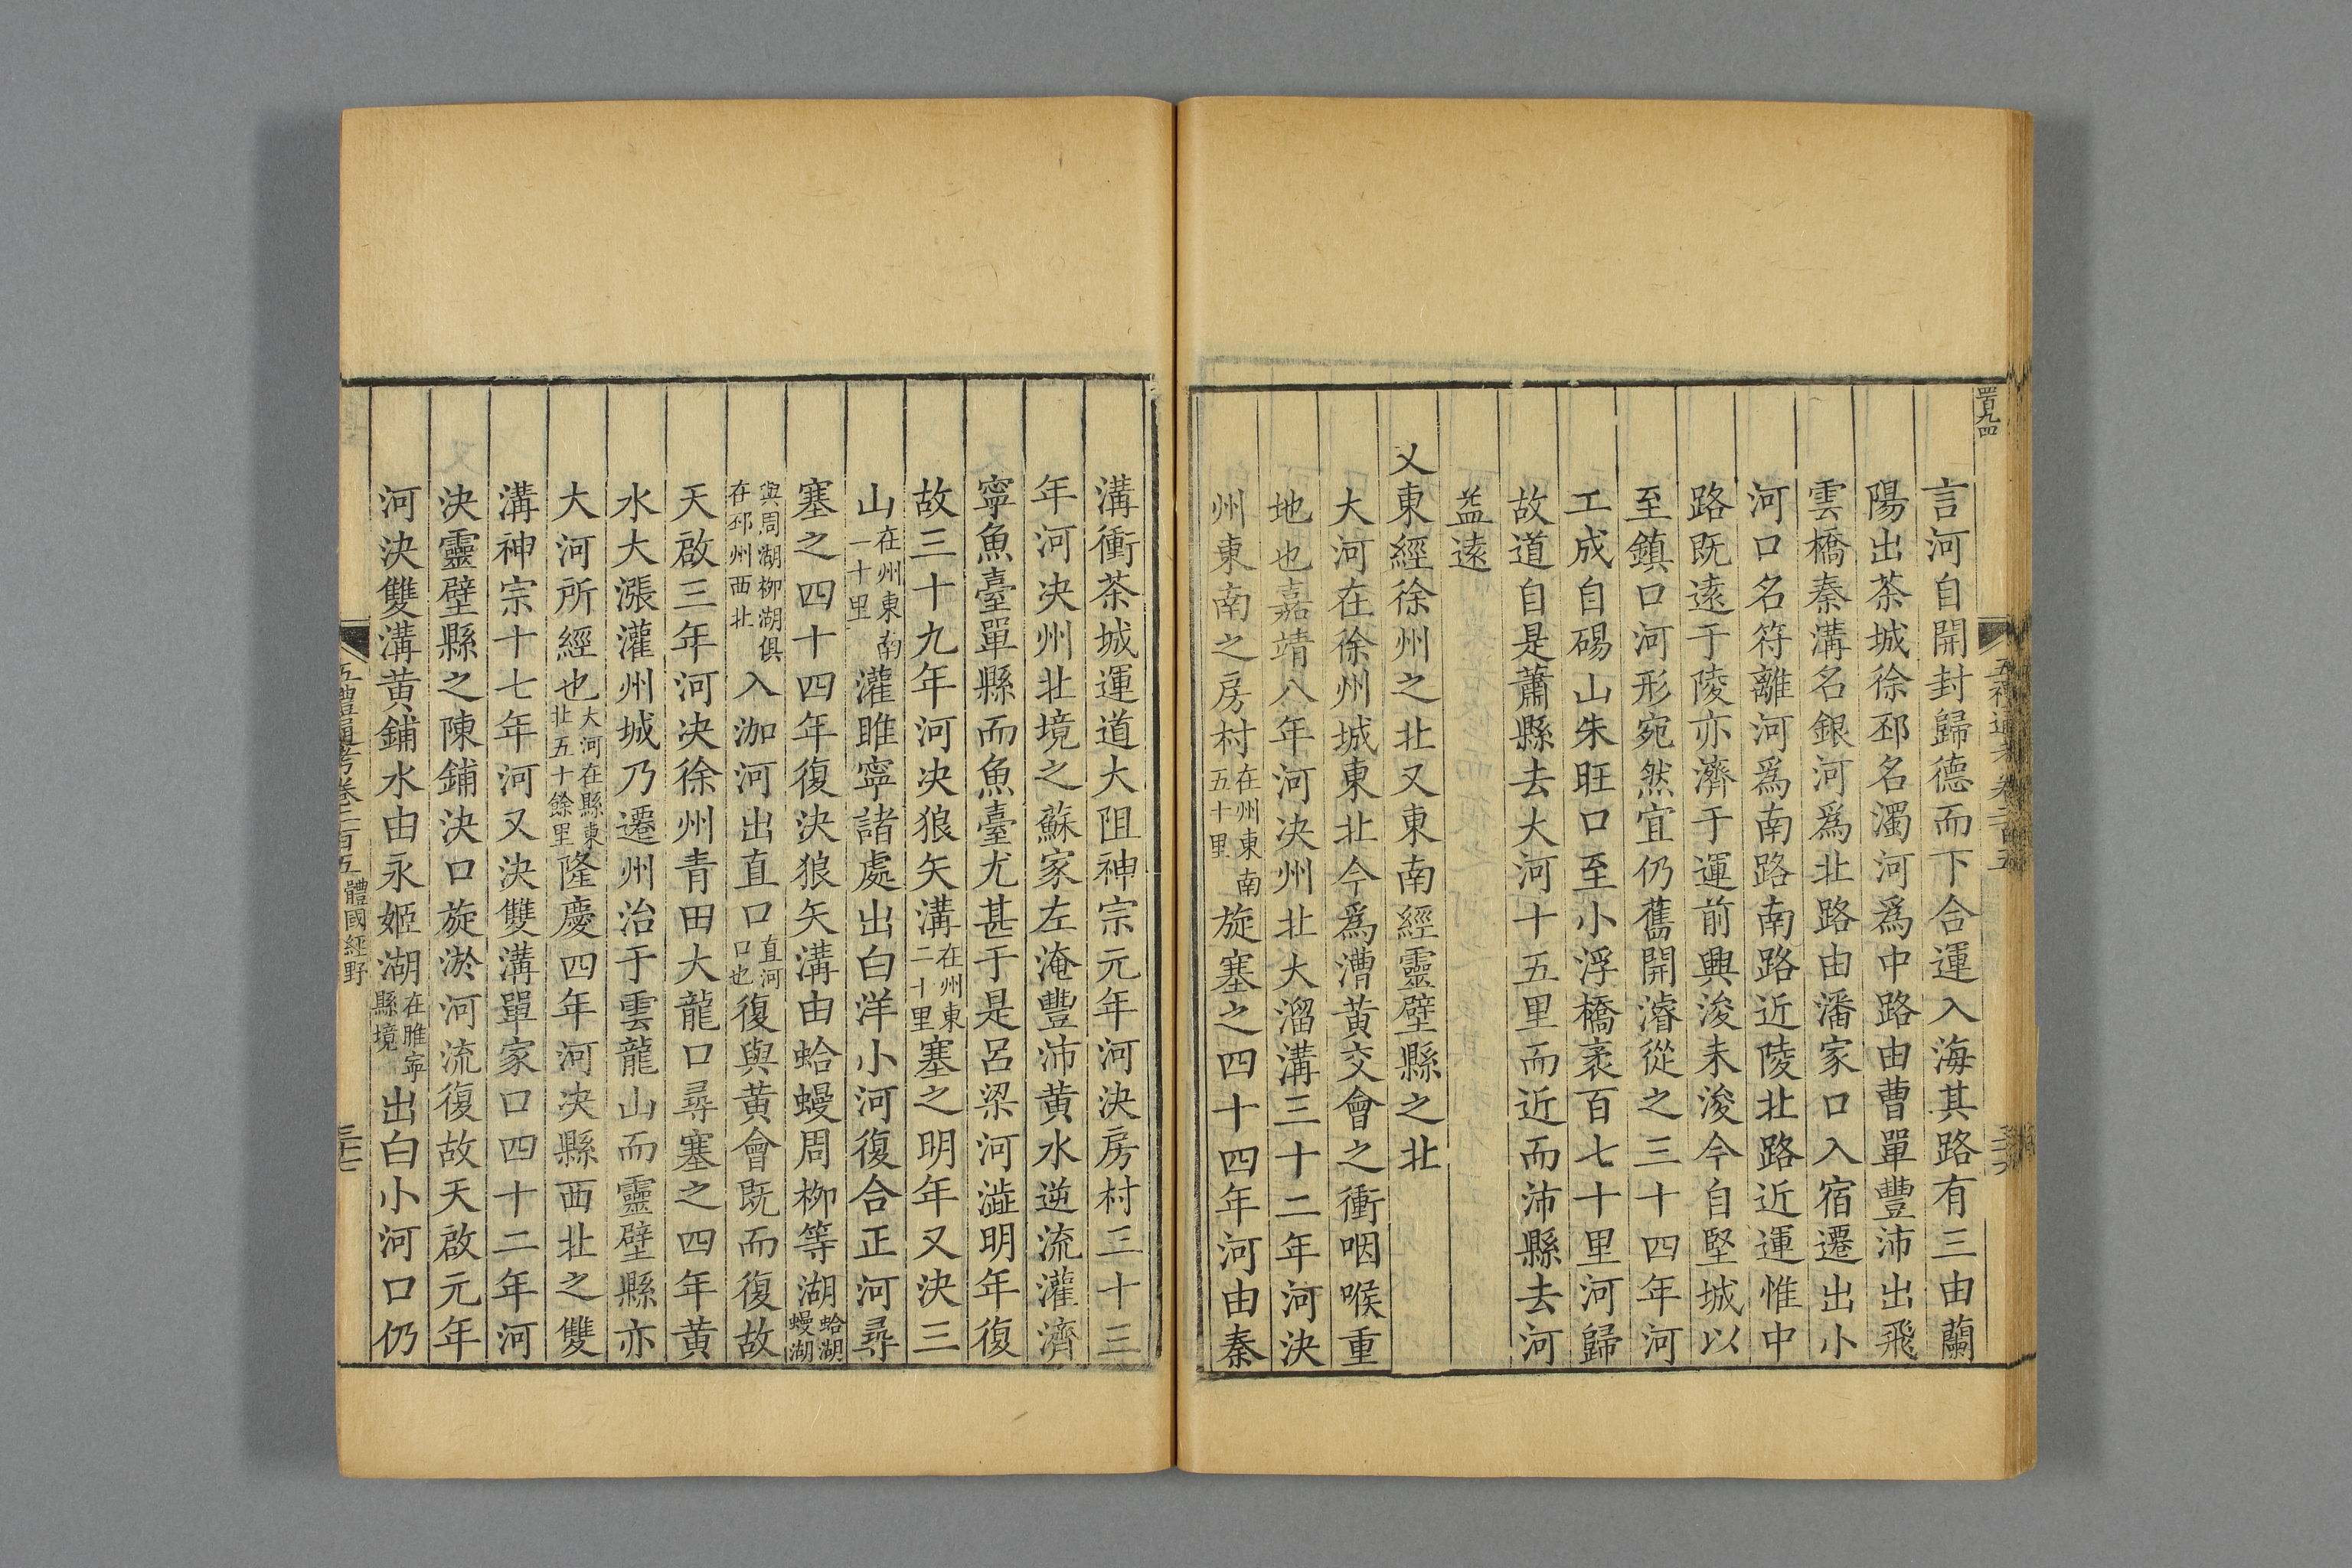 言河自開封歸德而下合運入海其路有三由蘭
陽出茶城徐邳名濁河爲中路由曹單豐沛出飛
雲橋秦溝名銀河爲北路由潘家口入宿遷出小
河口名符離河爲南路南路近陵北路近運惟中
路既遠于陵亦濟于運前興浚未浚今自堅城以
至鎮口河形宛然宜仍舊開濬從之三十四年河
工成自碭山朱旺口至小浮橋袤百七十里河歸
故道自是蕭縣去大河十五里而近而沛縣去河
益遠
又東經徐州之北又東南經靈壁縣之北
大河在徐州城東北今爲漕黃交會之衝咽喉重
地也嘉靖八年河決州北大溜溝三十二年河決
州東南之房村在州東南五十里旋塞之四十四年河由秦
溝衝茶城運道大阻神宗元年河決房村三十三
年河决州北境之蘇家左淹豐沛黃水逆流灌濟
寧魚臺單縣而魚臺尤甚于是呂梁河澁明年復
故三十九年河决狼矢溝在州東二十里塞之明年又決三
山在州東南一十里灌睢寧諸處出白洋小河復合正河尋
塞之四十四年復決狼矢溝由蛤鰻周柳等湖蛤湖鰻湖
與周湖柳湖俱在邳州西北入泇河出直口直河口也復與黃會既而復故
天啟三年河决徐州青田大龍口尋塞之四年黃
水大漲灌州城乃遷州治于雲龍山而靈壁縣亦
大河所經也大河在縣東北五十餘里隆慶四年河決縣西北之雙
溝神宗十七年河又決雙溝單家口四十二年河
決靈壁縣之陳鋪決口旋淤河流復故天啟元年
河決雙溝黃鋪水由永姬湖在睢寧縣境出白小河口仍
五禮通考卷二百五 體國經野